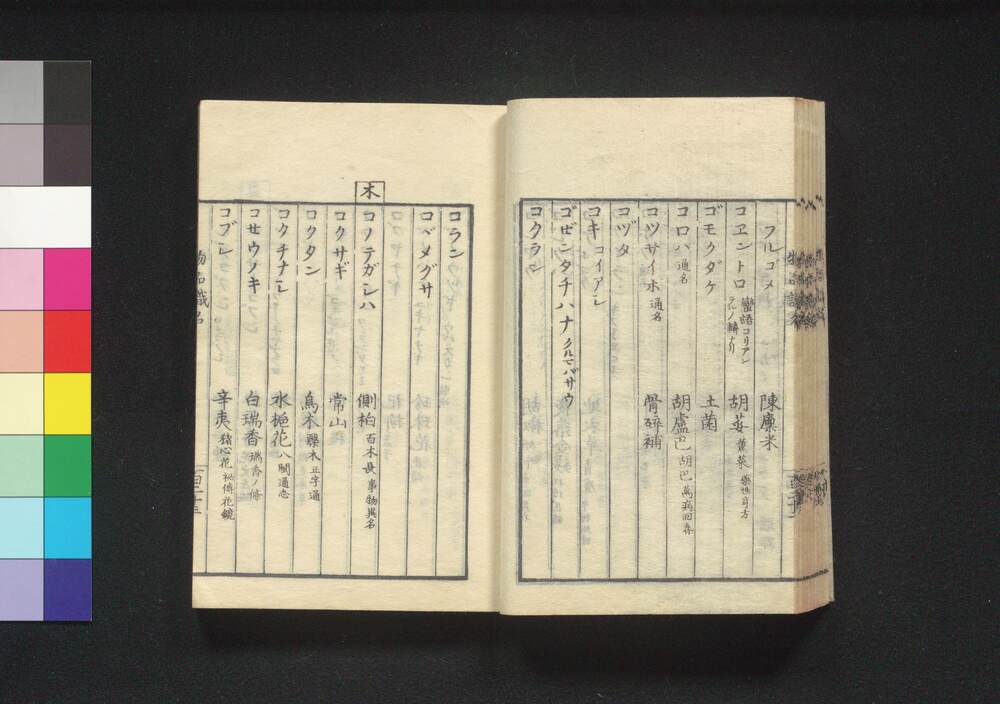 フルゴメ 陳廩米
コヱントロ 蠻語コリアンテルノ轉ナリ 胡荽 蕙菜 藥性奇方
ゴモクダケ 土菌
コロハ 通名 胡盧巴 胡巴 萬病回春
コツサイホ 通名 骨碎補
コヅタ
コキ コイアシ
ゴゼンタチハナ クルマバサウ
コクラン
コラン
コベメグサ
木
コノテガシハ 側柏 百木長 事物異名
コクサギ 常山
コクタン 烏木 正字通
コクチナシ 水梔花 八閩通志
コせウノキ 白瑞香 瑞香ノ條
コブシ 辛夷 猪心花 秘傳花鏡
物品識名